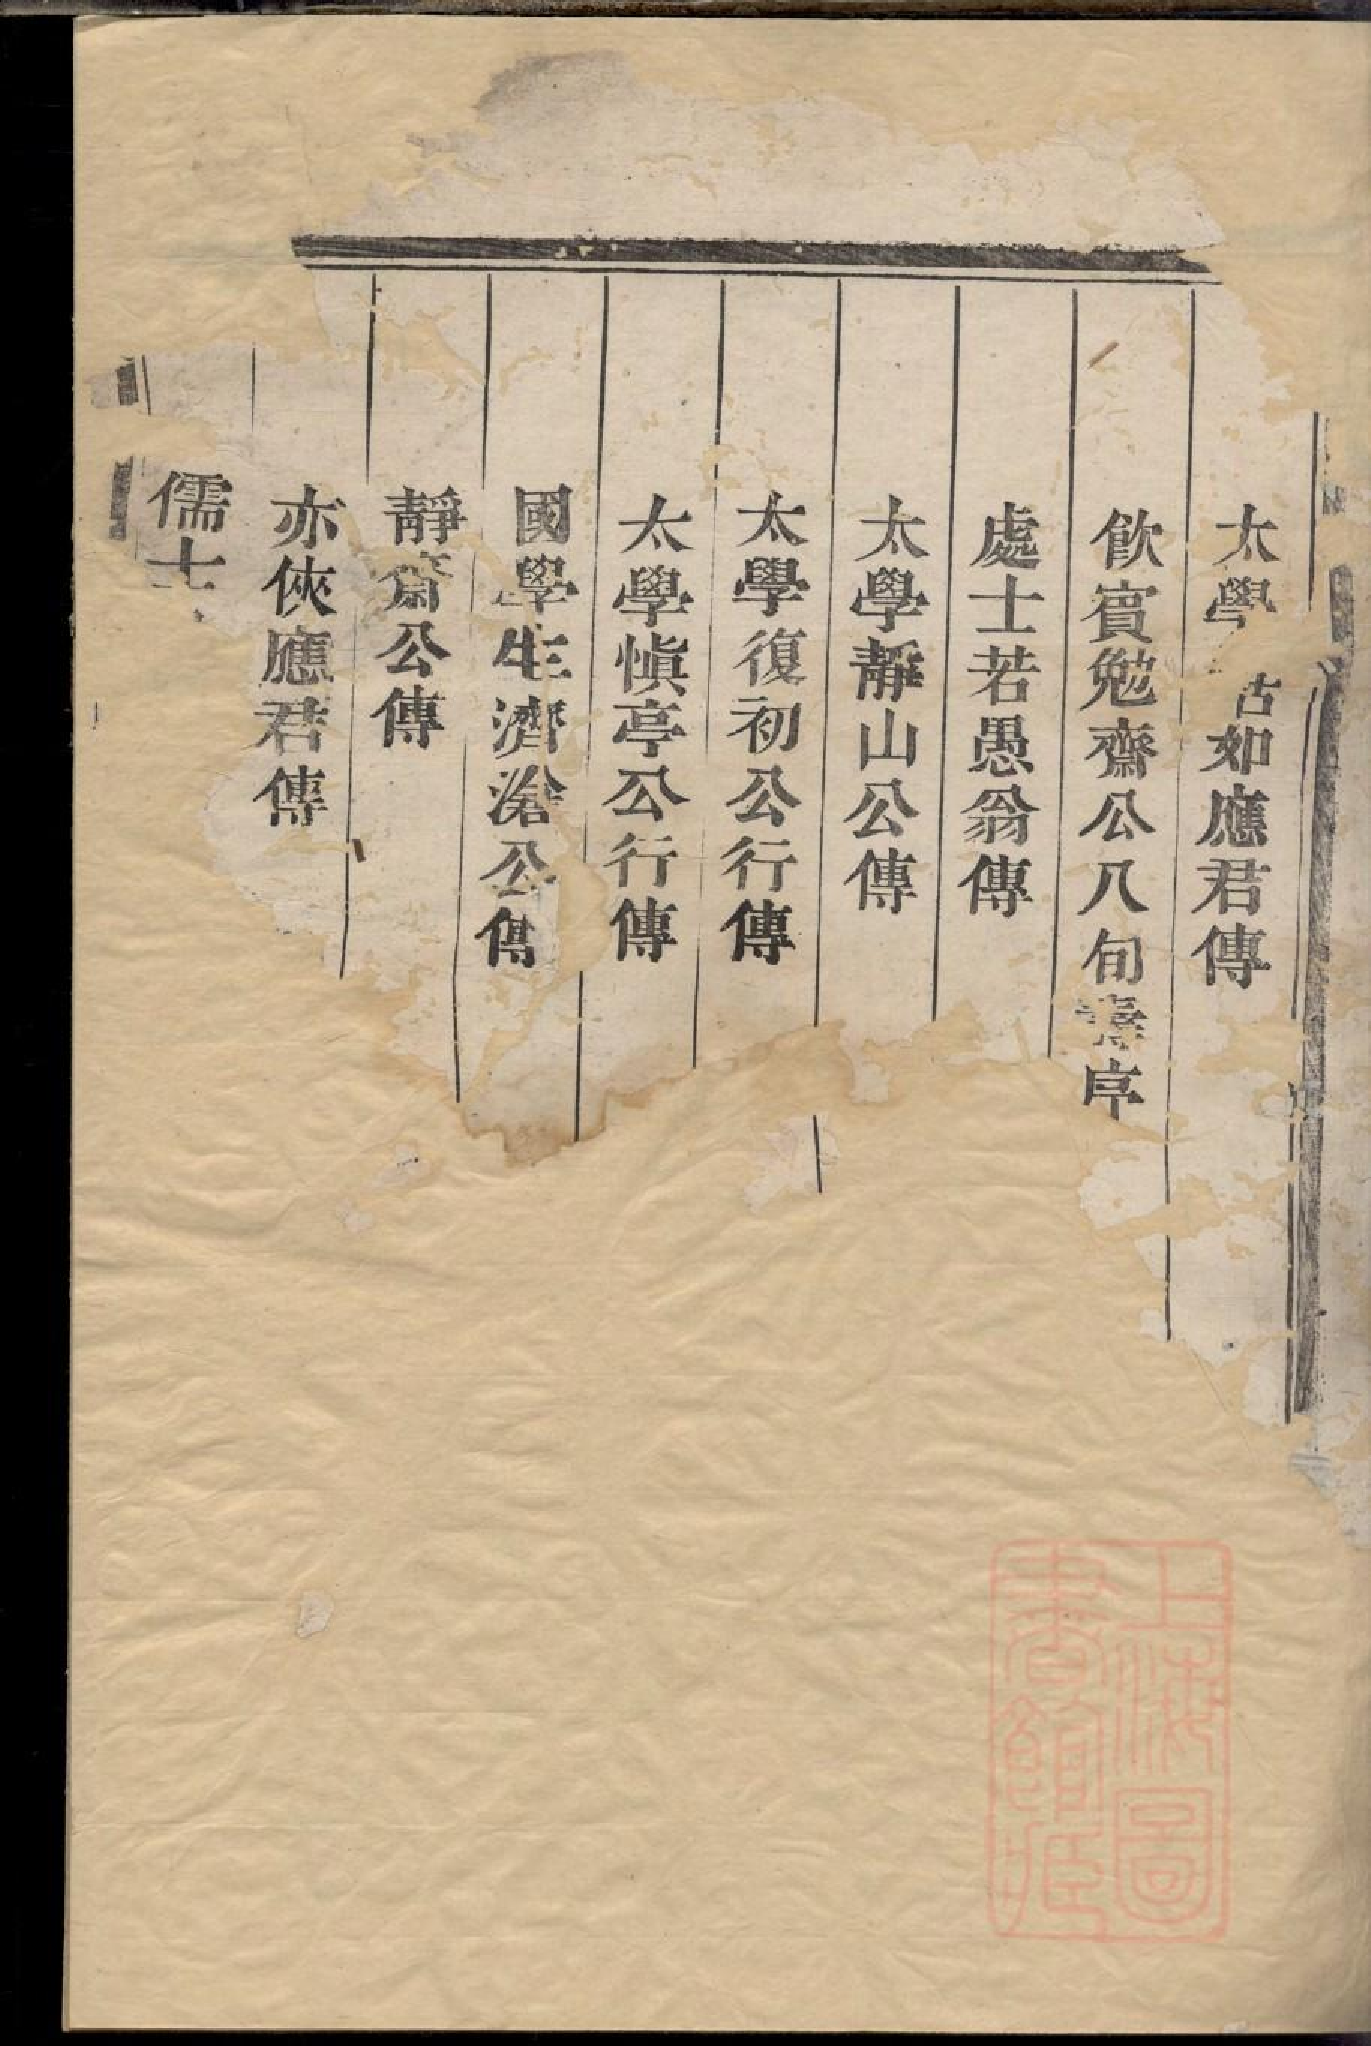 太學如應君傳
飲賔勉齋公八旬壽序
處士若愚翁傳
太學靜山公傳
太學復初公行傳
太學愼亭公行傳
國學生濟滄公傳
靜齋公傳
亦俠應君傳
儒士
上海圖
書館藏